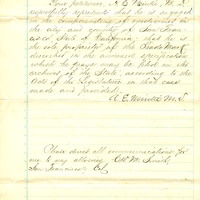 Your petitioner, R. E. Woods M. D.
respectfully represents that he is engaged
in the compounding of medicines in
the city and county of San Fran-
cisco, State of California; that he is
the sole proprietor of the Trade Mark
described in the annexed specification
which he prays may be filed in the
archives of the State, according to the
Acts of the Legislature in that case
made and provided.
R. E. Woods M. D.
Please direct all communications for
me to my attorney
San Francisco, Cal